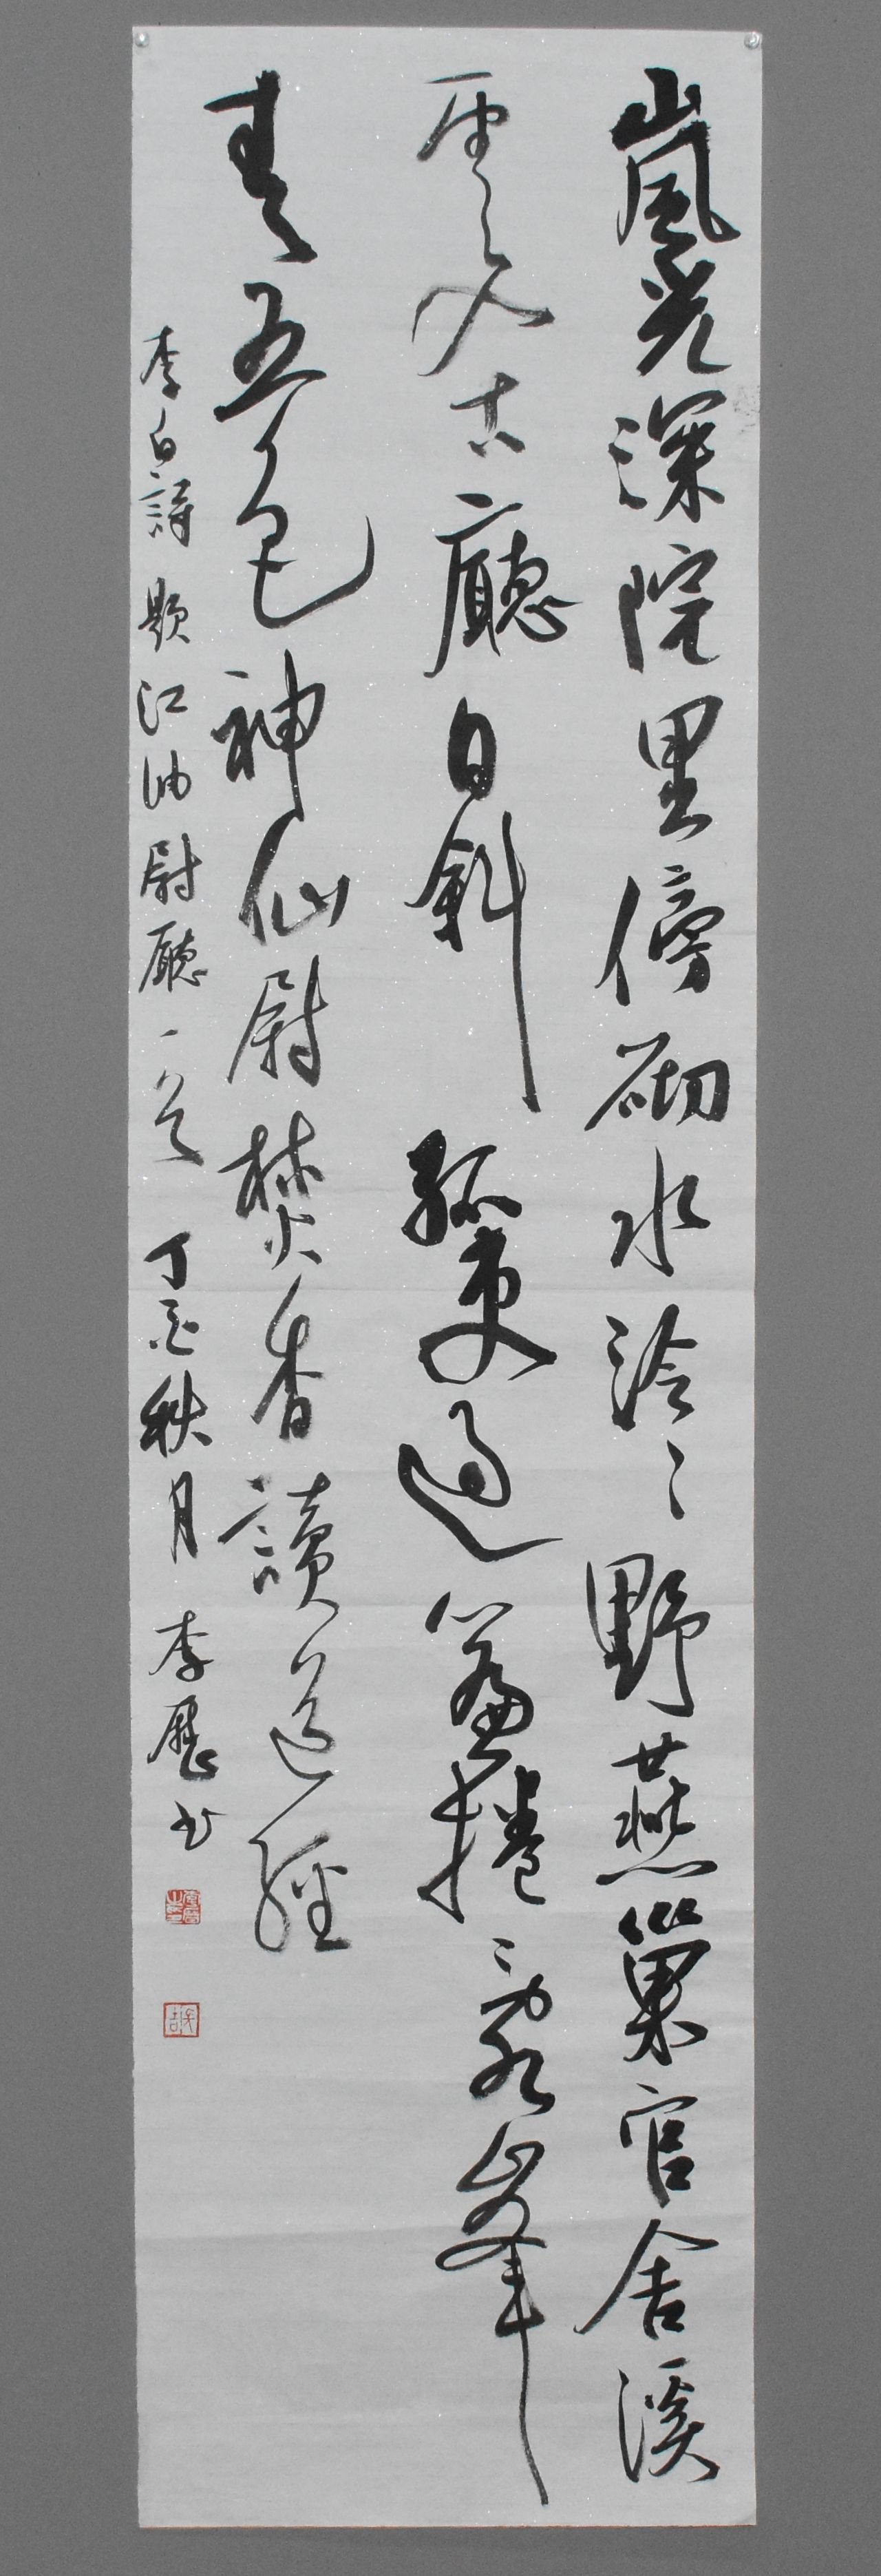 嵐光深院里傍砌水泠々野燕巢官舍溪
雲入古廳日斜孤吏過簾捲亂峰
青五色神仙尉焚香讀道經
李白詩 題江油尉廳一首 丁酉秋月 李歷书